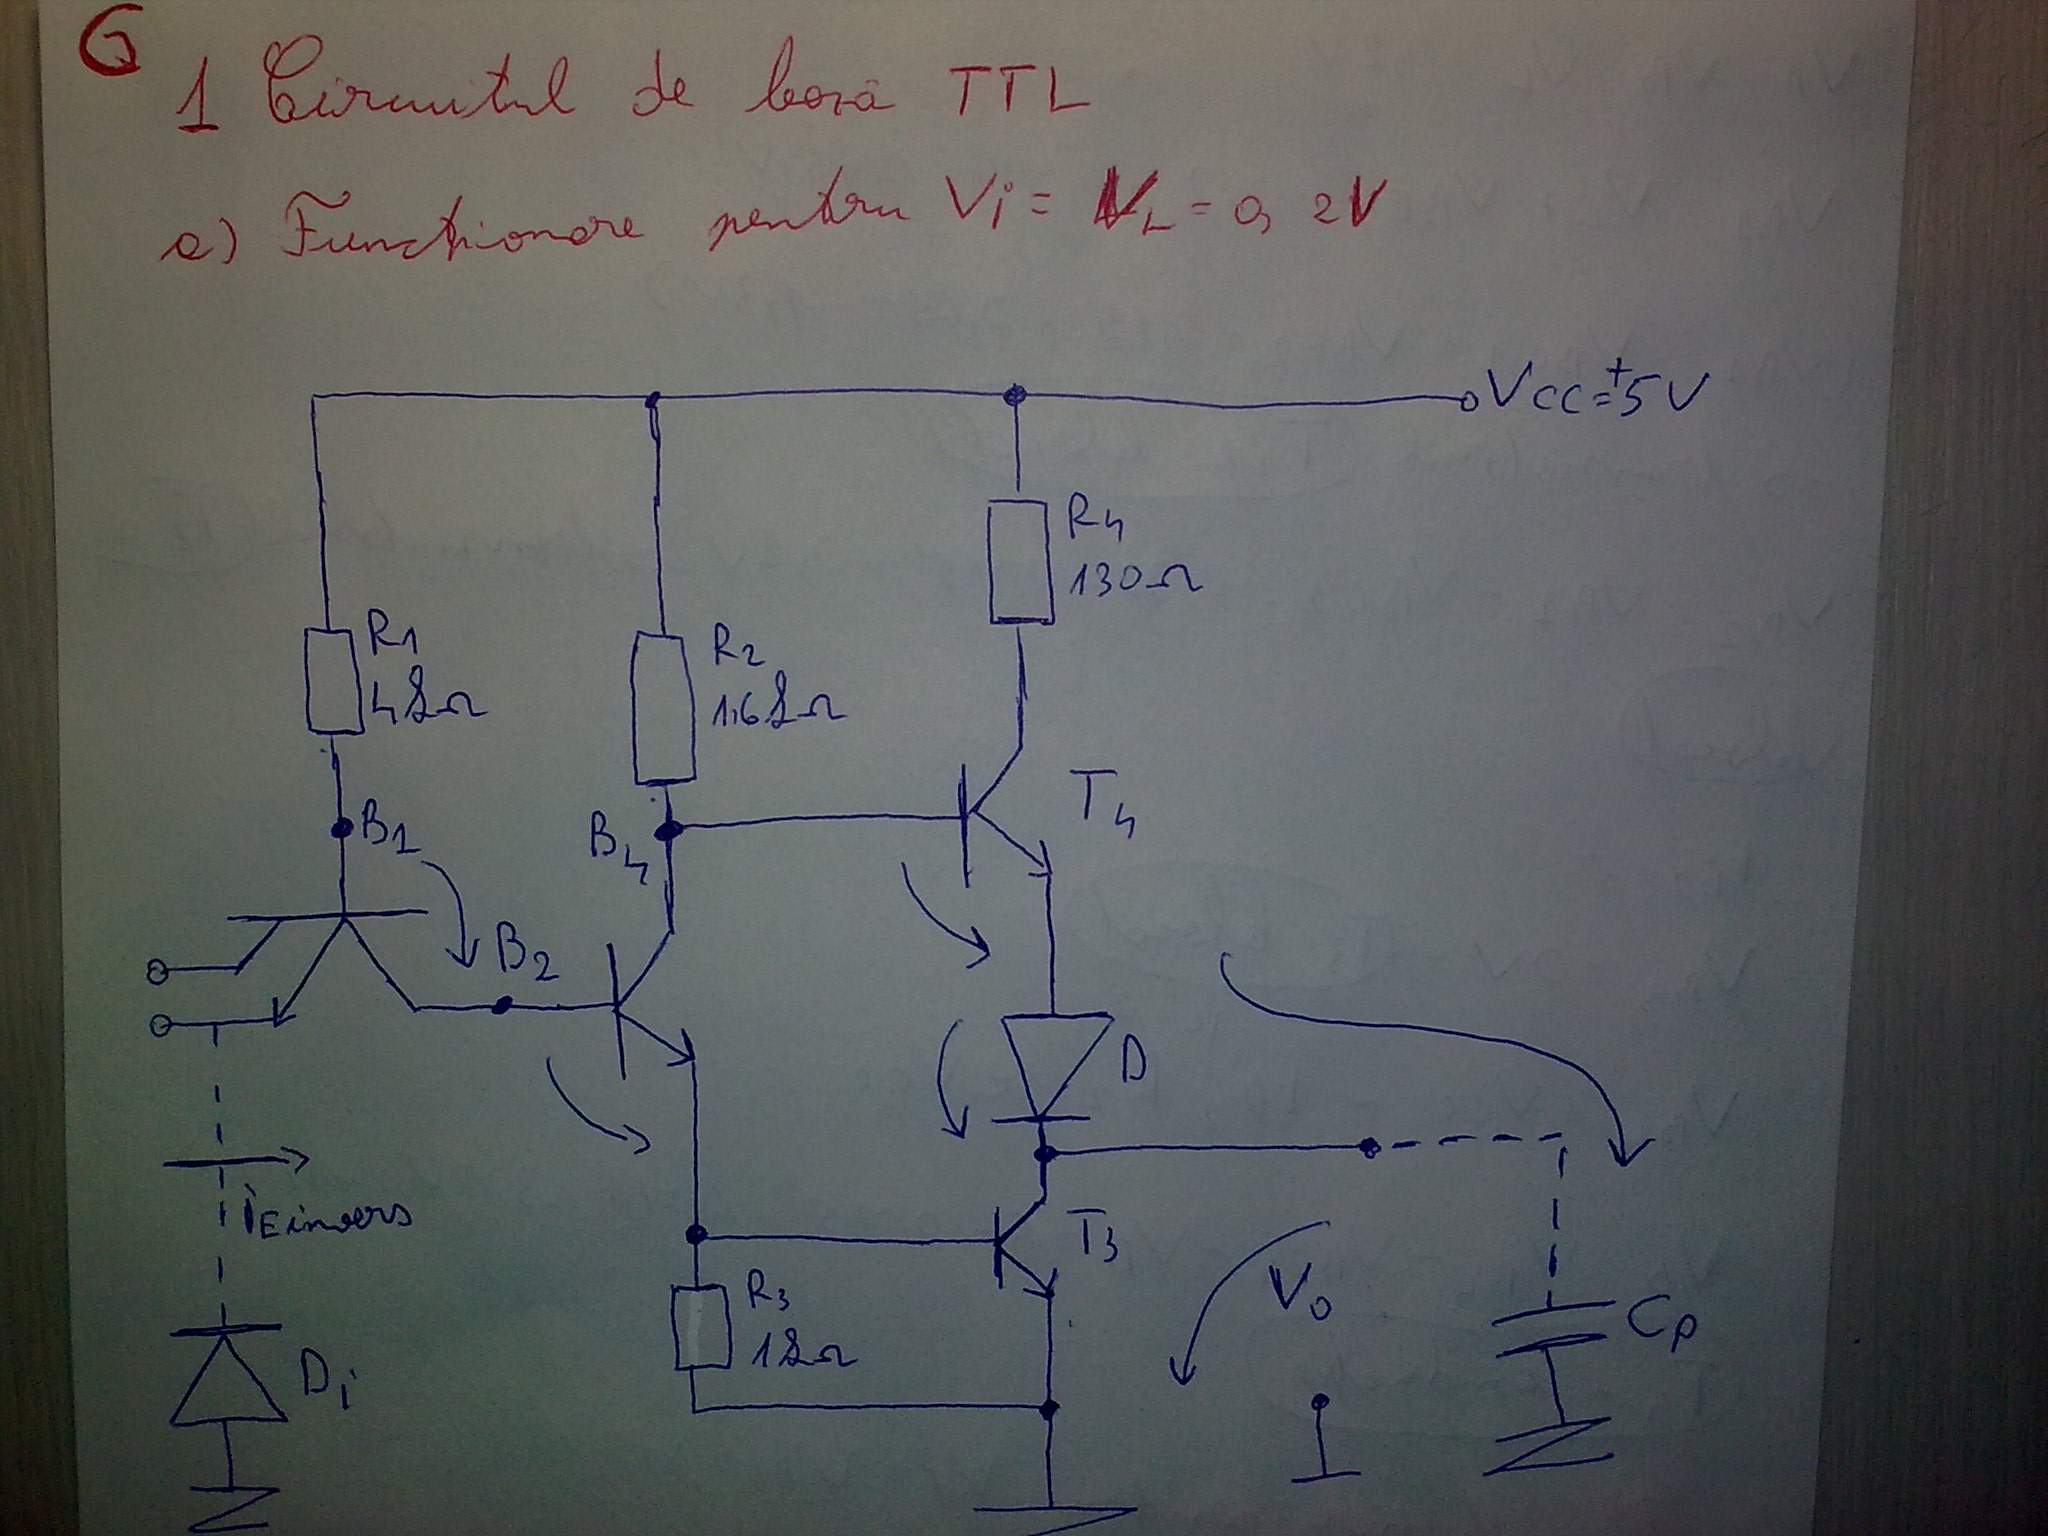 G
1 Circuitul de bază TTL
a) Funcționare pentru Vi = VL = 0,2V
VCC=+5V
R4
130Ω
R1
4kΩ
R2
1,6kΩ
T4
B1
B4
B2
D
iE invers
T3
R3
1kΩ
V0
Cp
Di